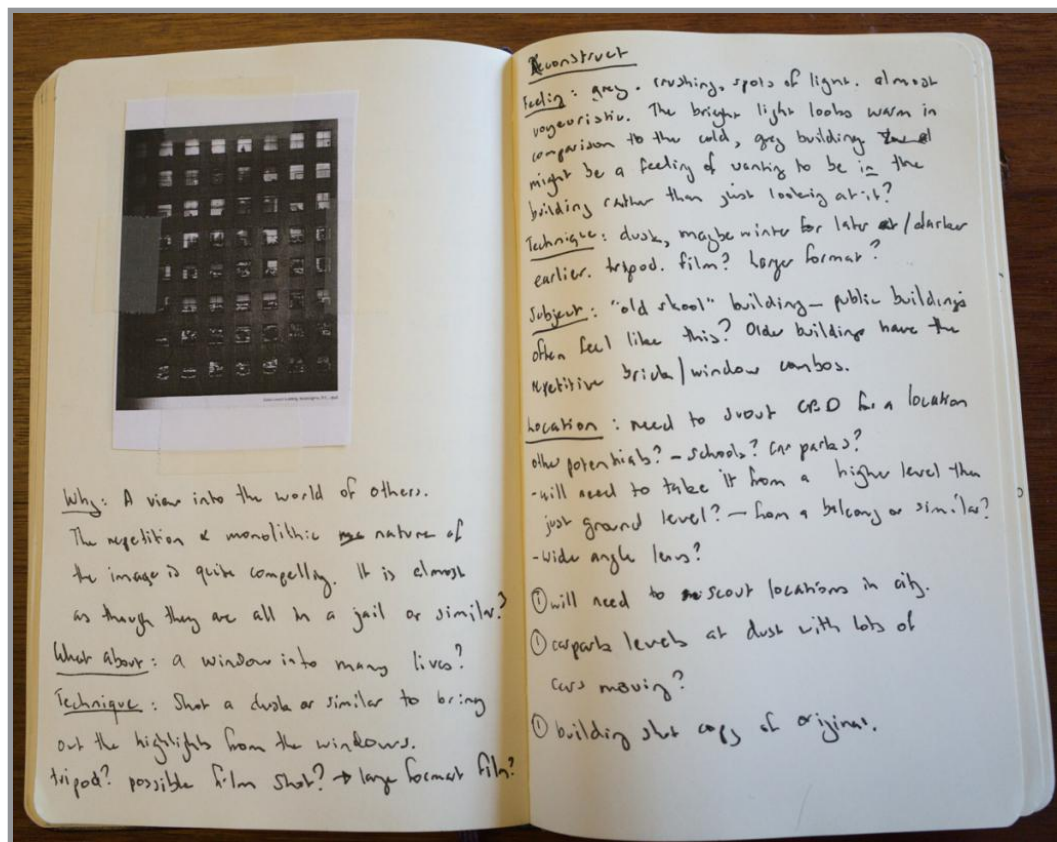 Why: A view into the world of others.
The repetition & monolithic nature of
the image is quite compelling. It is almost
as though they are all in a jail or similar?
What about: a window into many lives?
Technique: Shot a dusk or similar to bring
out the highlights from the windows.
tripod? possible film shot? → large format film?
Reconstruct
Feeling: grey. crushing. spots of light. almost
voyeuristic. The bright light looks warm in
comparison to the cold, grey building.
might be a feeling of wanting to be in the
building rather than just looking at it?
Technique: dusk, maybe winter for later /darker
earlier. tripod. film? Larger format?
Subject: "old skool" building – public buildings
often feel like this? Older buildings have the
repetitive brick/window combos.
Location: need to scout CBD for a location
other potentials? – schools? car parks?
- will need to take it from a higher level than
just ground level? – from a balcony or similar?
- wide angle lens?
① will need to scout locations in city.
① carpark levels at dusk with lots of
cars moving?
① building shot copy of original.